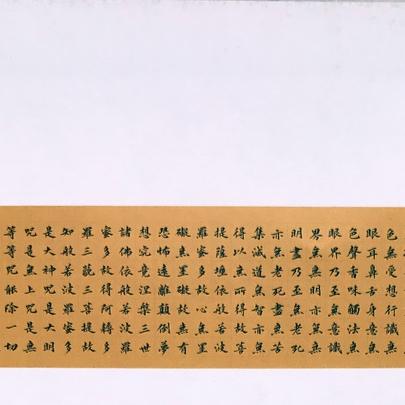 色無受想行識無
眼耳鼻舌身意無
色聲香味觸法無
眼界乃至無意識
界無無明亦無無
明盡乃至無老死
亦無老死盡無苦
集滅道無智亦無
得以無所得故菩
提薩埵依般若波
羅蜜多故心無罣
礙無罣礙故無有
恐怖遠離顛倒夢
想究竟涅槃三世
諸佛依般若波羅
蜜多故得阿耨多
羅三藐三菩提故
知般若波羅蜜多
是大神呪是大明
呪是無上呪是無
等等呪能除一切